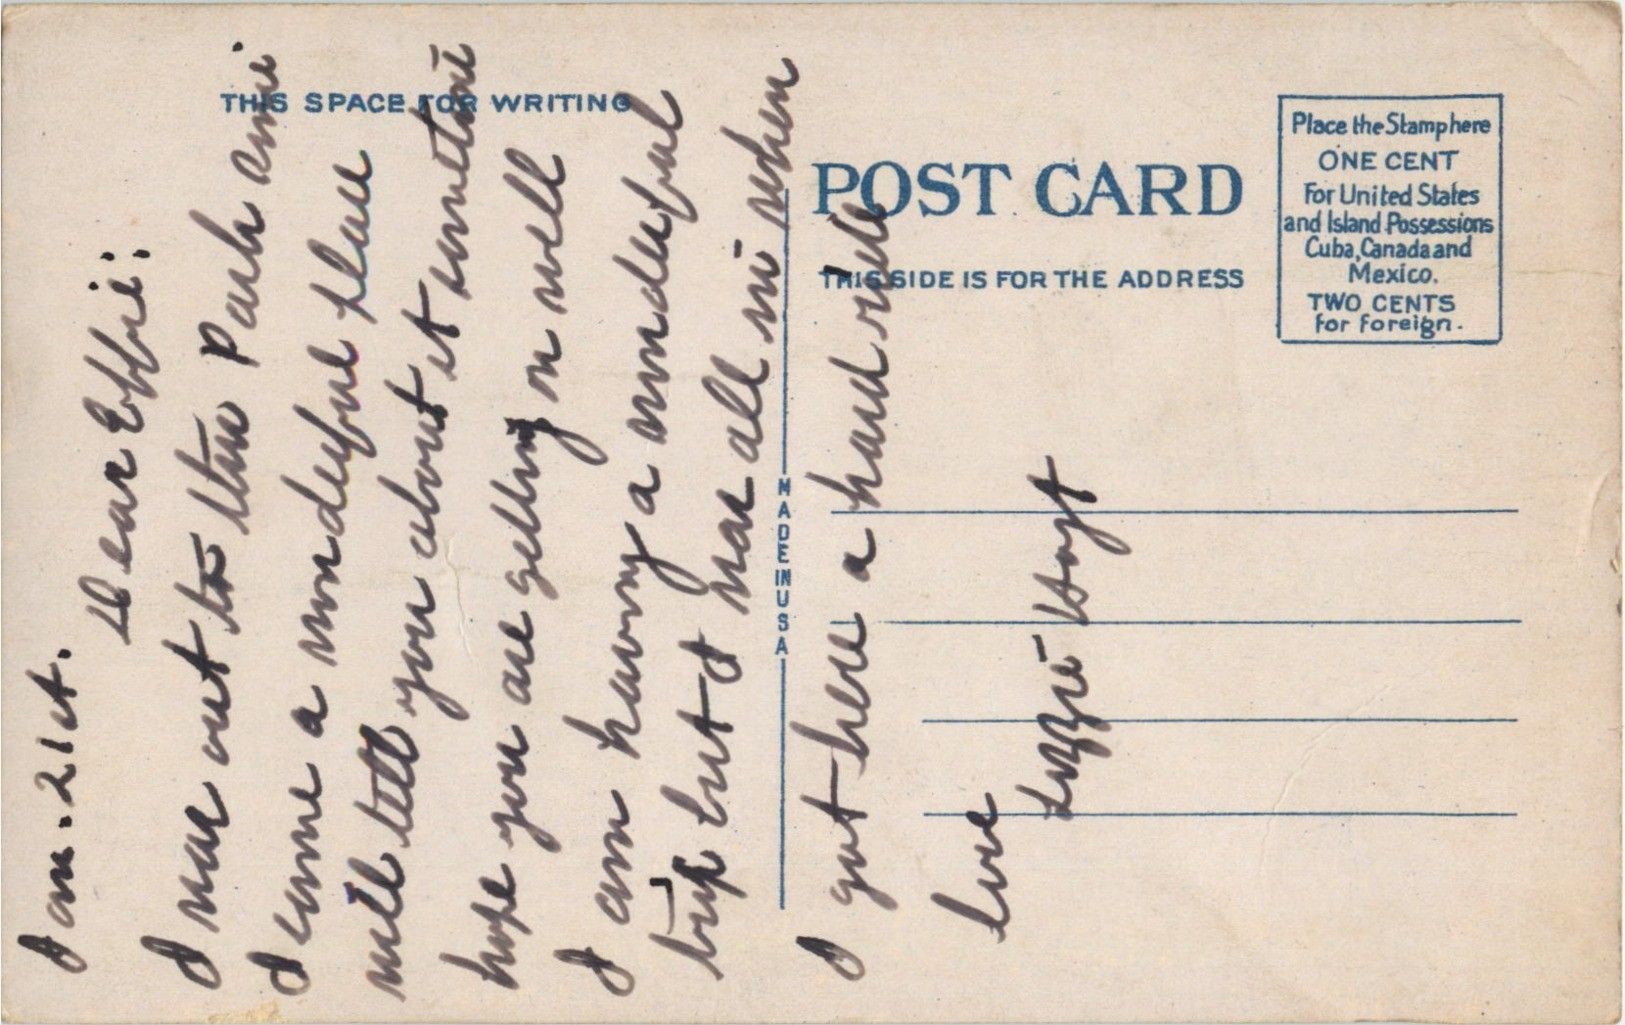 THIS SPACE FOR WRITING
Jan. 21st.
Dear Effie:
I was out to this Park
a wonderful place
will tell you about it sometime
hope you are getting on well
I am having a wonderful
trip but I was all in when
I got here a hard ride
love
Lizzie Hoyt
MADE IN U S A
POST CARD
THIS SIDE IS FOR THE ADDRESS
Place the Stamp here
ONE CENT
For United States
and Island Possessions
Cuba, Canada and
Mexico.
TWO CENTS
for Foreign.